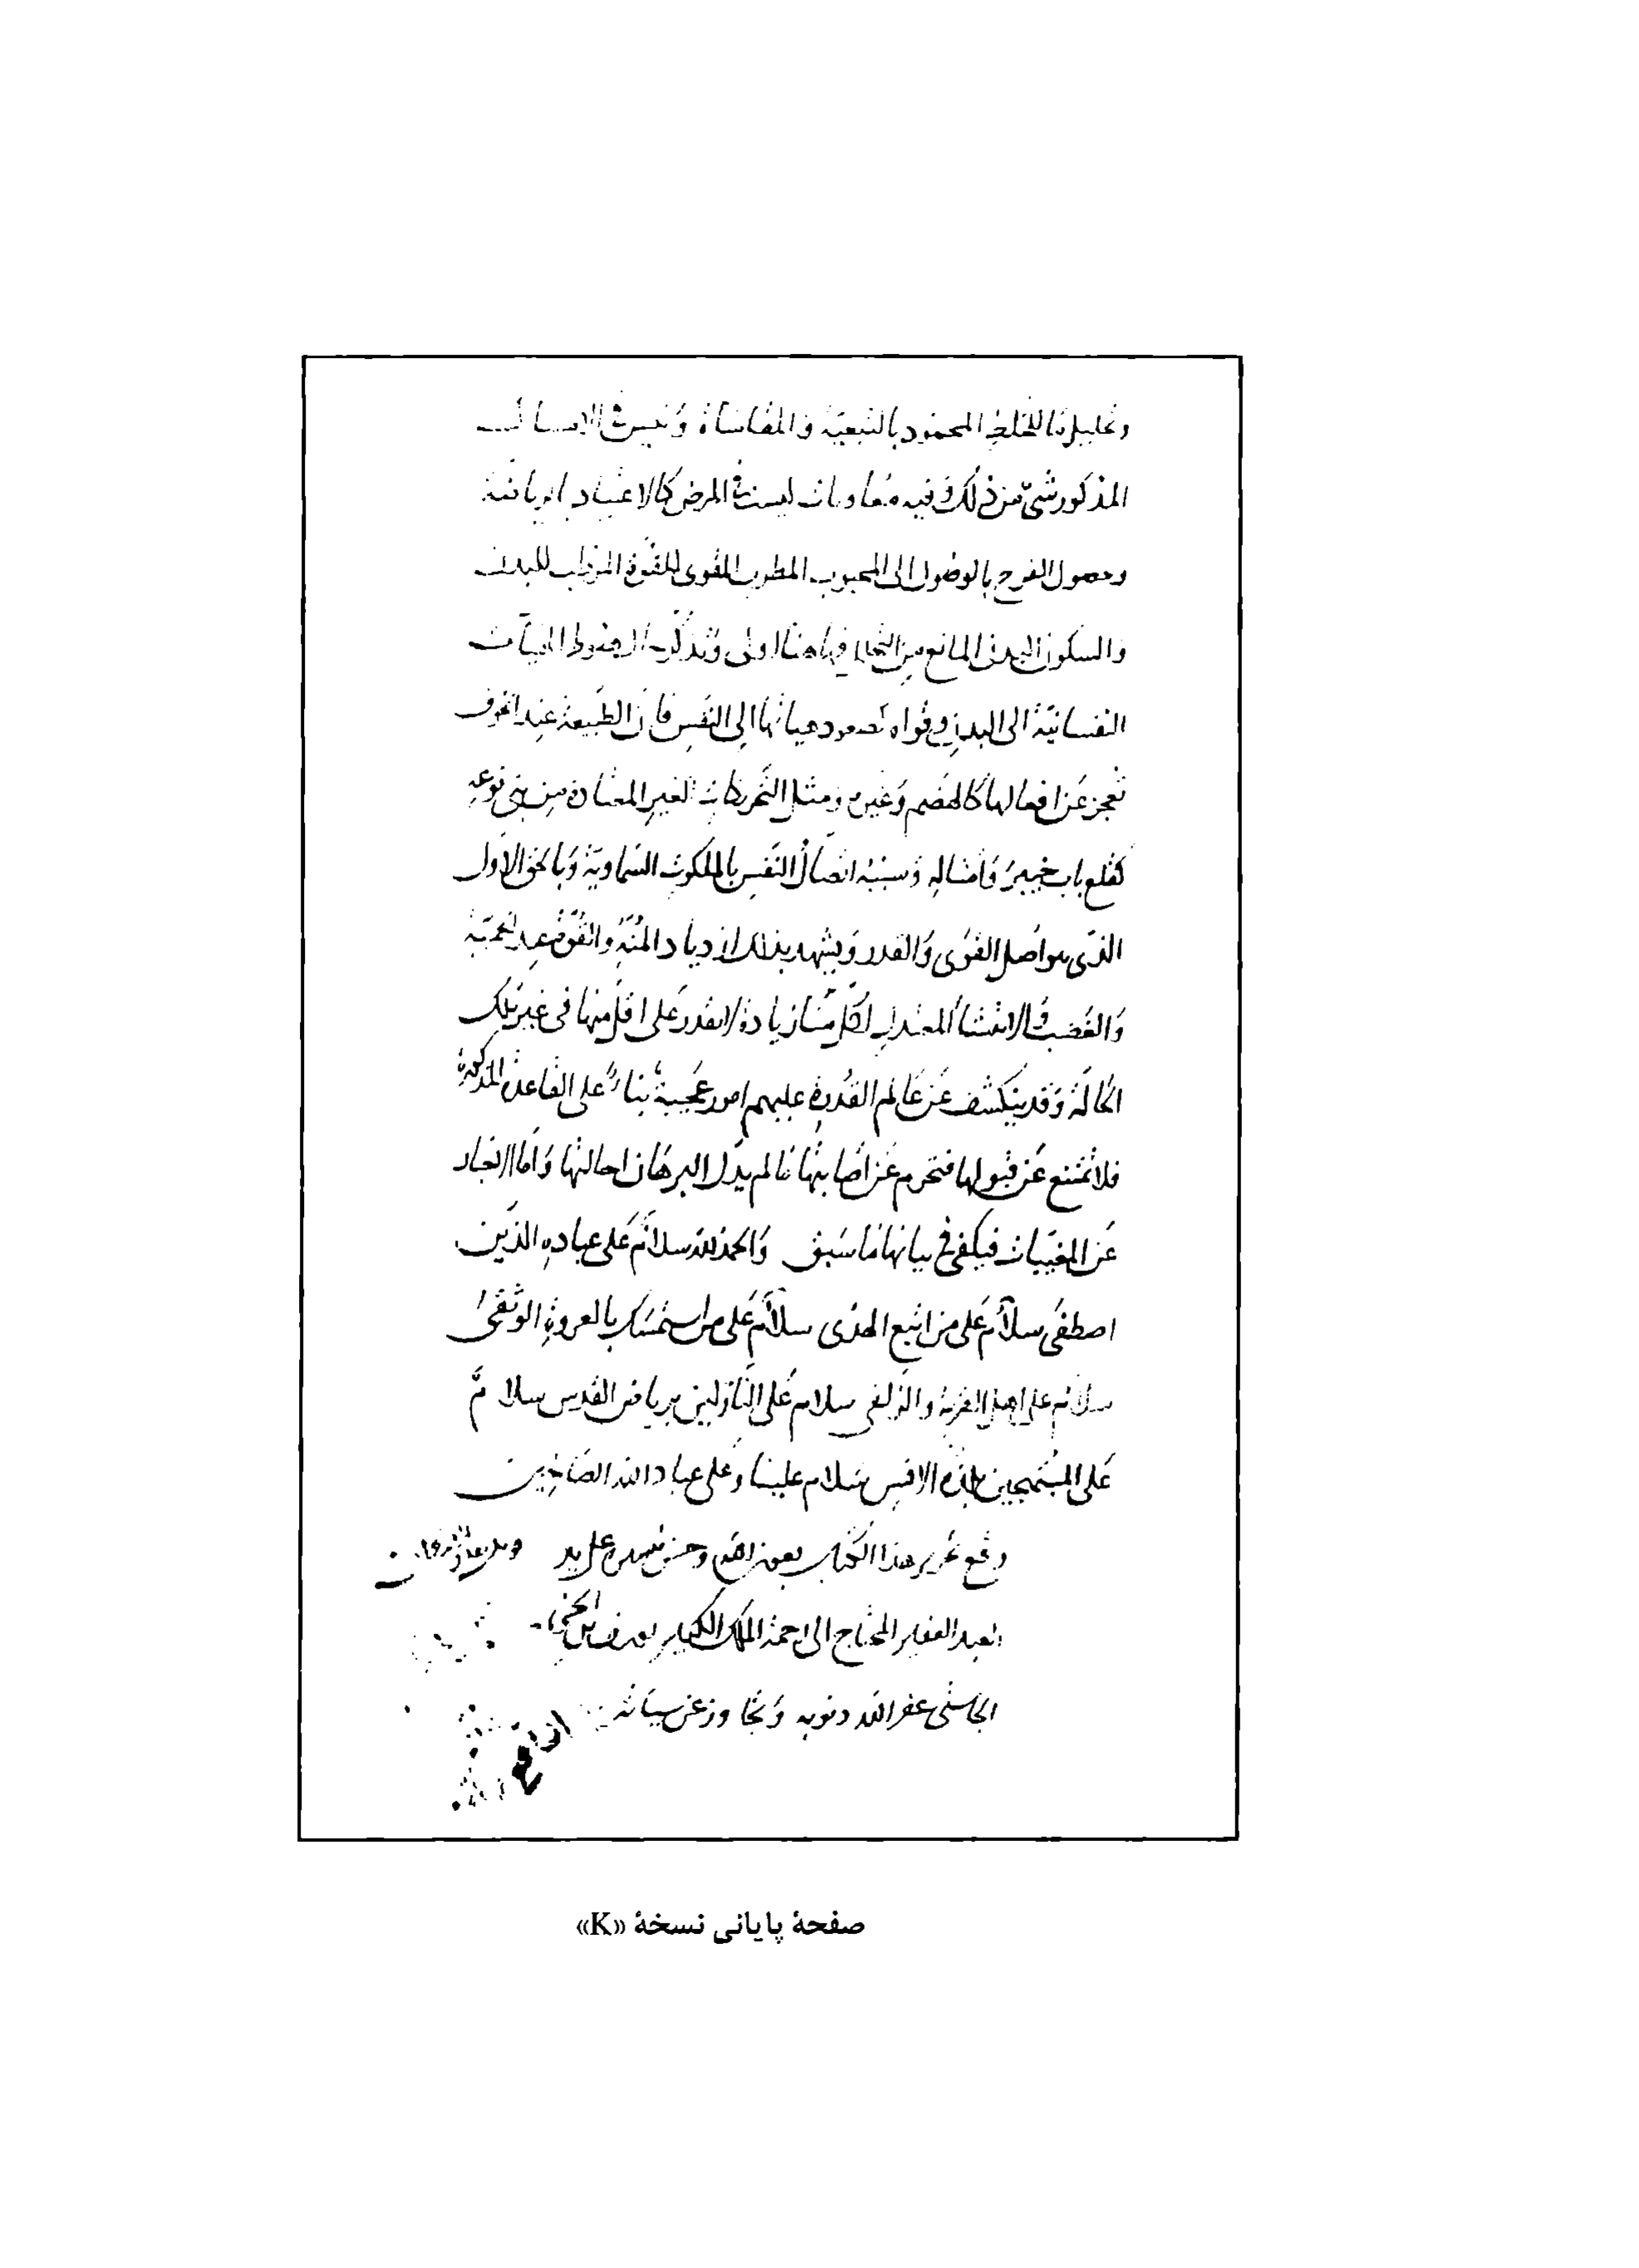 وتحليلها للخلط المحمود بالتبعية والمقاساة وليس في الإنسان
المذكور شيء من ذلك وفيه معاونات ليست في المرض كالاعتياد بالرياضة
وحصول الفرح بالوصول الى المحبوب المطرب المقوى للقوة المرطب للبدن
والسكون البدنى المانع من التحلل فهاهنا اولى وتذكرت هبوط الهيآت
النفسانية الى البدن وقواه لصعود هياتها الى النفس فان الطبيعة عند الخوف
تعجز عن افعالها كالهضم وغيره ومثل التحريكات الغير المعتادة من بنى نوعه
كقلع باب خيبر وامثاله وسببه اتصال النفس بالملكوت السماوية وبالحق الاول
الذى هو اصل القوى والقدر ويشهد بذلك ازدياد المنة والقوة عند المحبة
والغضب والانتشاء المعتدل لكل منا زيادة لا نقدر على اقل منها فى غير تلك
الحالة وقد ينكشف عن عالم القدرة عليهم امور عجيبة بناء على القاعدة المذكورة
فلا تمتنع عن قبولها فتحرم عن اصابتها ما لم يدل البرهان احالتها واما الاخبار
عن المغيبات فيكفى فى بيانها ما سبق والحمد لله سلام على عباده الذين
اصطفى سلام على من اتبع الهدى سلام على من استمسك بالعروة الوثقى
سلام على اهل القربة والزلفى سلام على النازلين برياض القدس سلام
على المبتهجين بلذة الانس سلام علينا وعلى عباد الله الصالحين
وقع تحرير هذا الكتاب بعون الله وحسن تيسيره على يد
العبد الفقير المحتاج الى رحمة الملك الكبير
غفر الله ذنوبه وتجاوز عن سيئاته
صفحهٔ پایانی نسخهٔ «K»